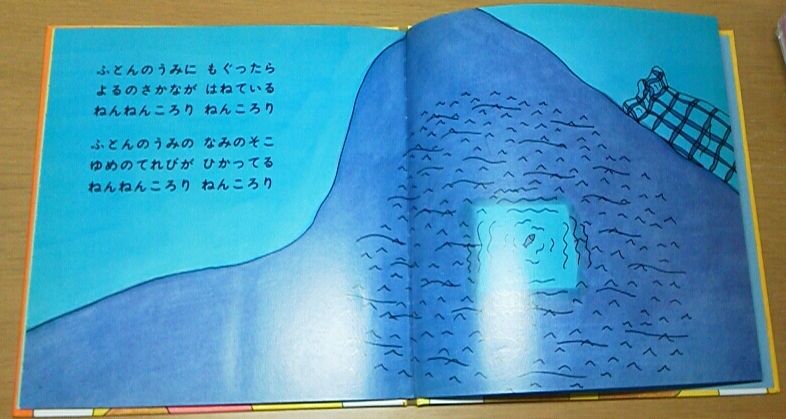 ふとんのうみに もぐったら
よるのさかなが はねている
ねんねんころり ねんころり
ふとんのうみの なみのそこ
ゆめのてれびが ひかってる
ねんねんころり ねんころり